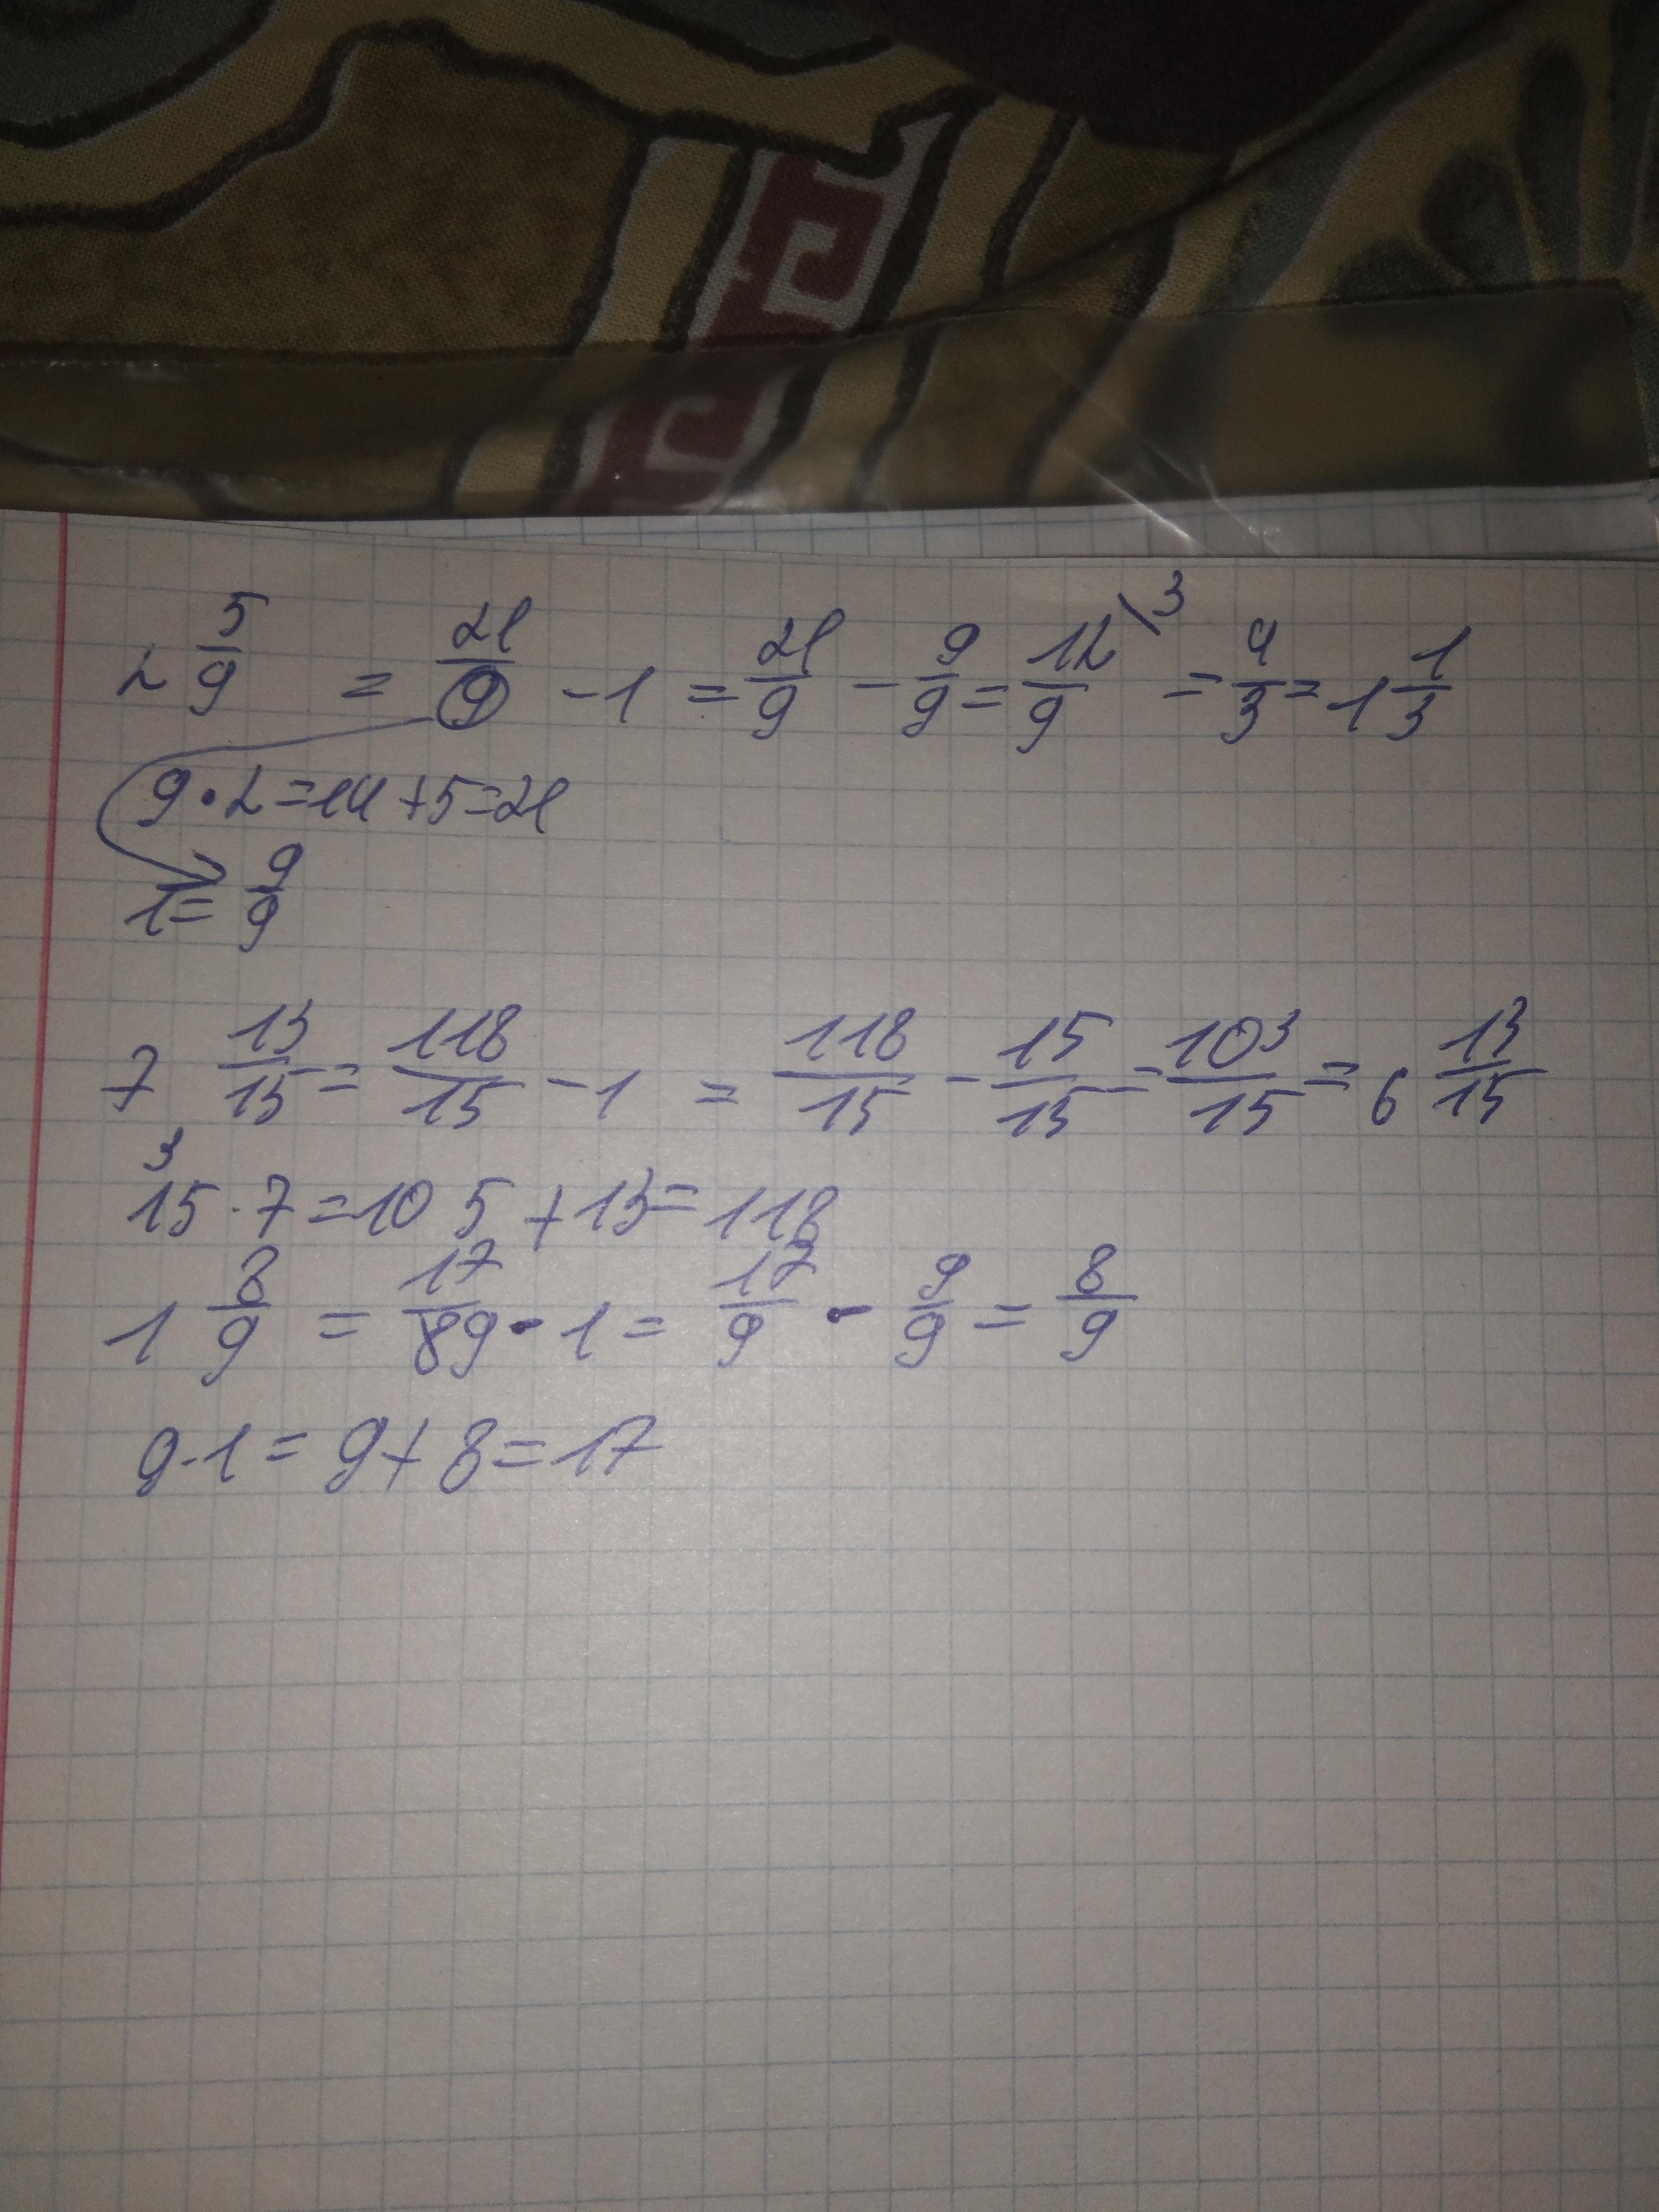 2 5/9 = 21/9 - 1 = 21/9 - 9/9 = 12/9 \3 = 4/3 = 1 1/3
9 · 2 = 14 + 5 = 21
1 = 9/9
7 13/15 = 118/15 - 1 = 118/15 - 15/15 = 103/15 = 6 13/15
3
15 · 7 = 105 + 13 = 118
1 8/9 = 17/89 - 1 = 17/9 - 9/9 = 8/9
9 · 1 = 9 + 8 = 17